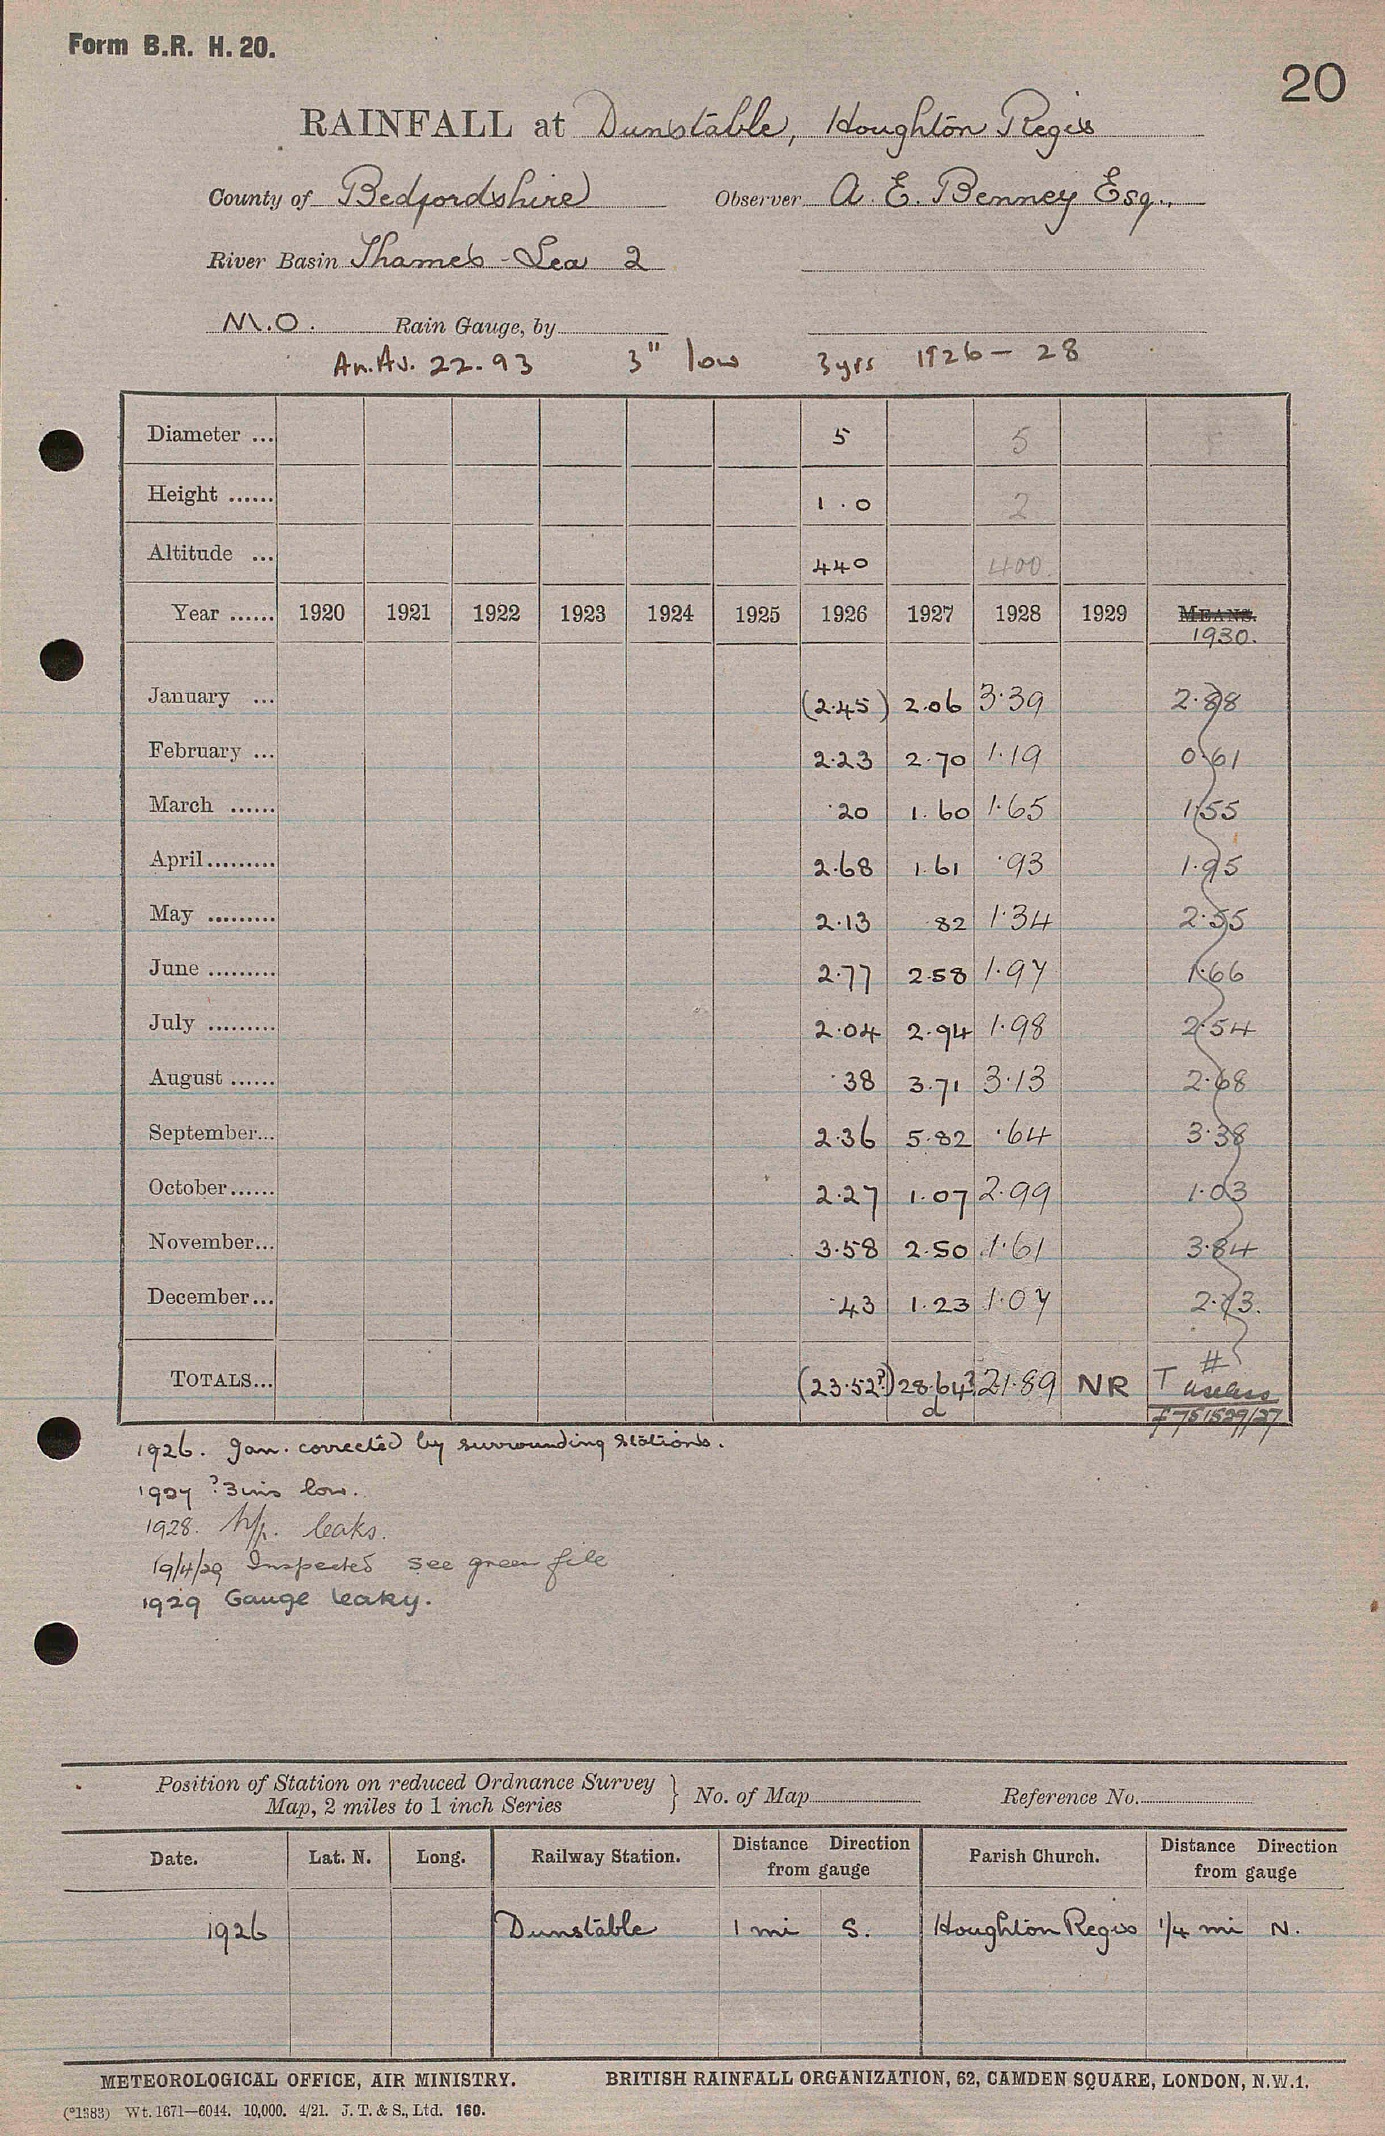 Form B.R. H. 20.
20
RAINFALL at Dunstable, Houghton Regis
County of Bedfordshire Observer A. E. Benney Esq.,
River Basin Thames - Lea 2
M.O. Rain Gauge, by
An.Av. 22.93 3" low 3yrs 1926 - 28
Diameter ... 5 5
Height ...... 1.0 2
Altitude ... 440 400
Year ...... 1920 1921 1922 1923 1924 1925 1926 1927 1928 1929 MEANS.
1930.
January ... (2.45) 2.06 3.39 2.88
February ... 2.23 2.70 1.19 0.61
March ...... .20 1.60 1.65 1.55
April ......... 2.68 1.61 .93 1.95
May ......... 2.13 .82 1.34 2.55
June ......... 2.77 2.58 1.97 1.66
July ......... 2.04 2.94 1.98 2.54
August ...... .38 3.71 3.13 2.68
September... 2.36 5.82 .64 3.38
October ...... 2.27 1.07 2.99 1.03
November... 3.58 2.50 1.61 3.84
December... .43 1.23 1.07 2.73.
TOTALS... (23.52?) 28.64? 21.89 NR T #
d useless
1926. Jan. corrected by surrounding stations.
1927 ? 3ins low.
1928. leaks.
19/4/29 Inspected see green file
1929 Gauge leaky.
Position of Station on reduced Ordnance Survey
Map, 2 miles to 1 inch Series } No. of Map Reference No.
Date. Lat. N. Long. Railway Station. Distance Direction from gauge Parish Church. Distance Direction from gauge
1926 Dunstable 1 mi S. Houghton Regis 1/4 mi N.
METEOROLOGICAL OFFICE, AIR MINISTRY. BRITISH RAINFALL ORGANIZATION, 62, CAMDEN SQUARE, LONDON, N.W.1.
(*1383) Wt. 1671—6044. 10,000. 4/21. J. T. & S., Ltd. 160.